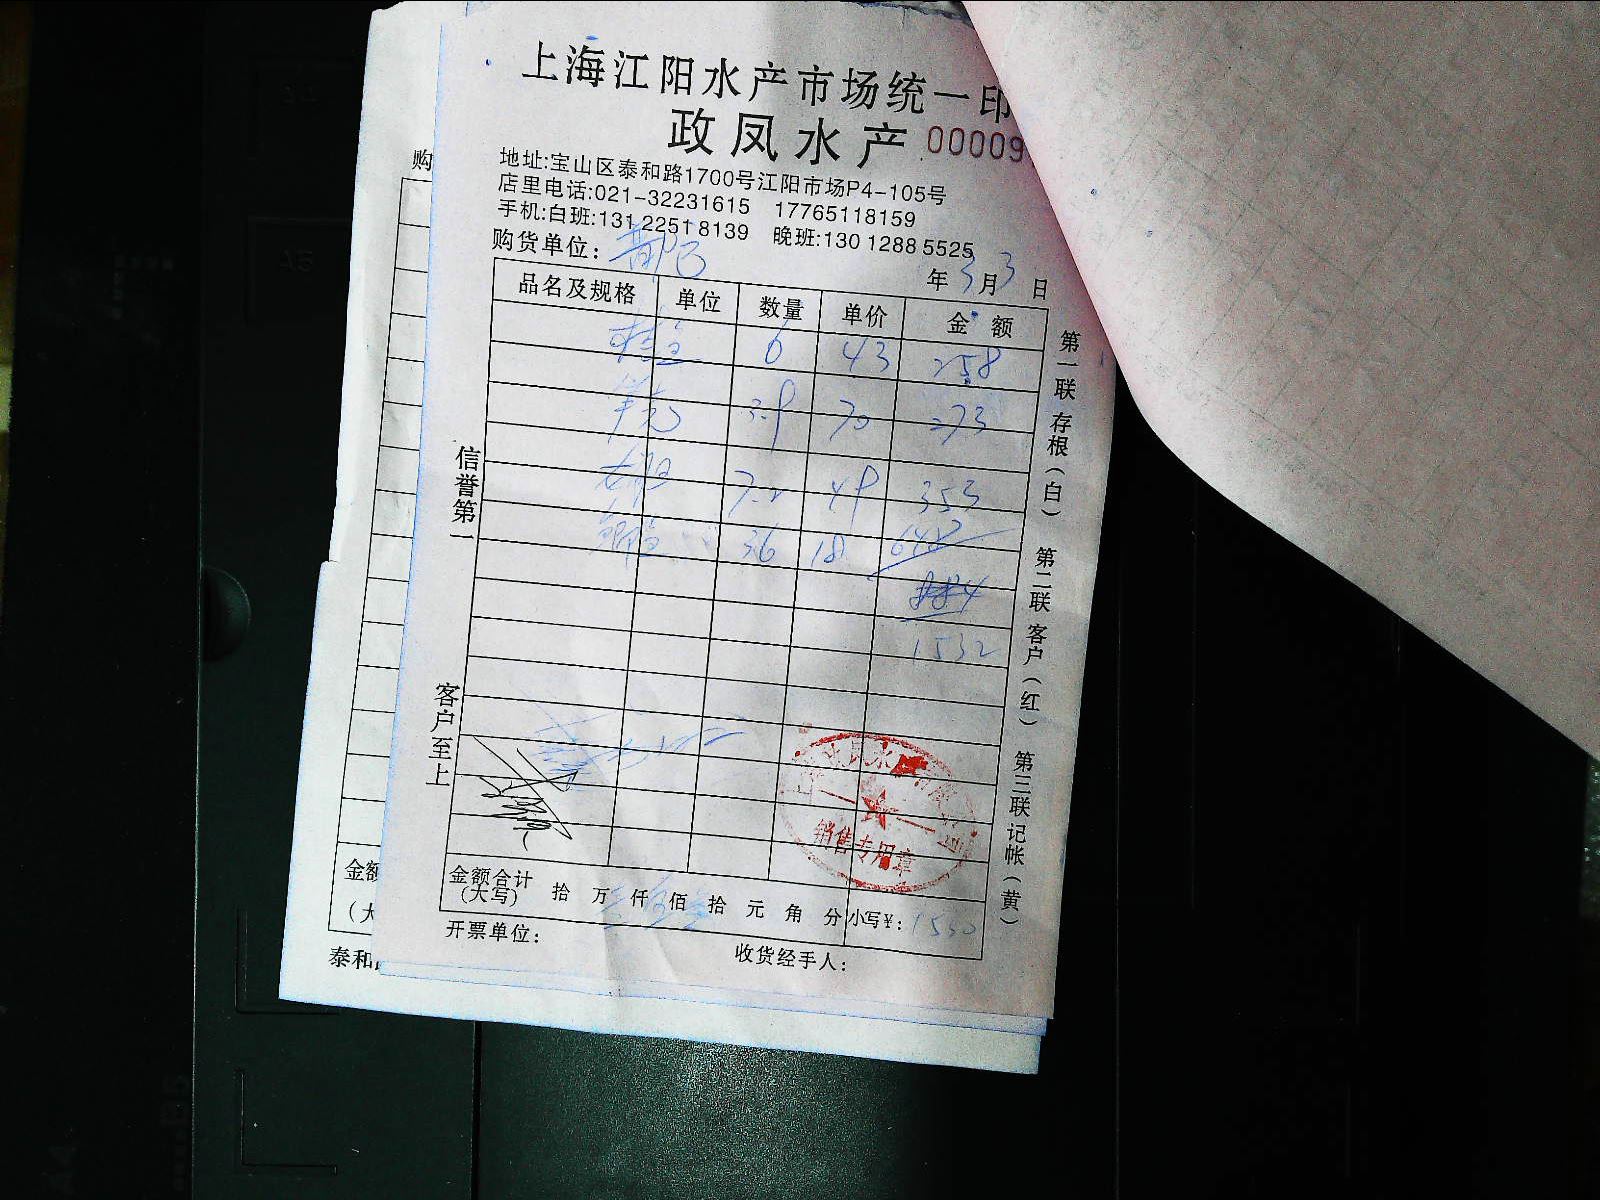 上海江阳水产市场统一印
政凤水产 00009
地址:宝山区泰和路1700号江阳市场P4-105号
店里电话:021-32231615 17765118159
手机:白班:131 2251 8139 晚班:130 1288 5525
购货单位:
年3月3日
品名及规格 单位 数量 单价 金额
6 43 258
3.9 70 273
7.2 49 353
36 18 648
1532
信誉第一
客户至上
第一联 存根(白) 第二联 客户(红) 第三联 记帐(黄)
销售专用章
金额合计(大写) 拾 万 仟 佰 拾 元 角 分 小写¥: 1530
开票单位: 收货经手人:
购
金额
(大
泰和